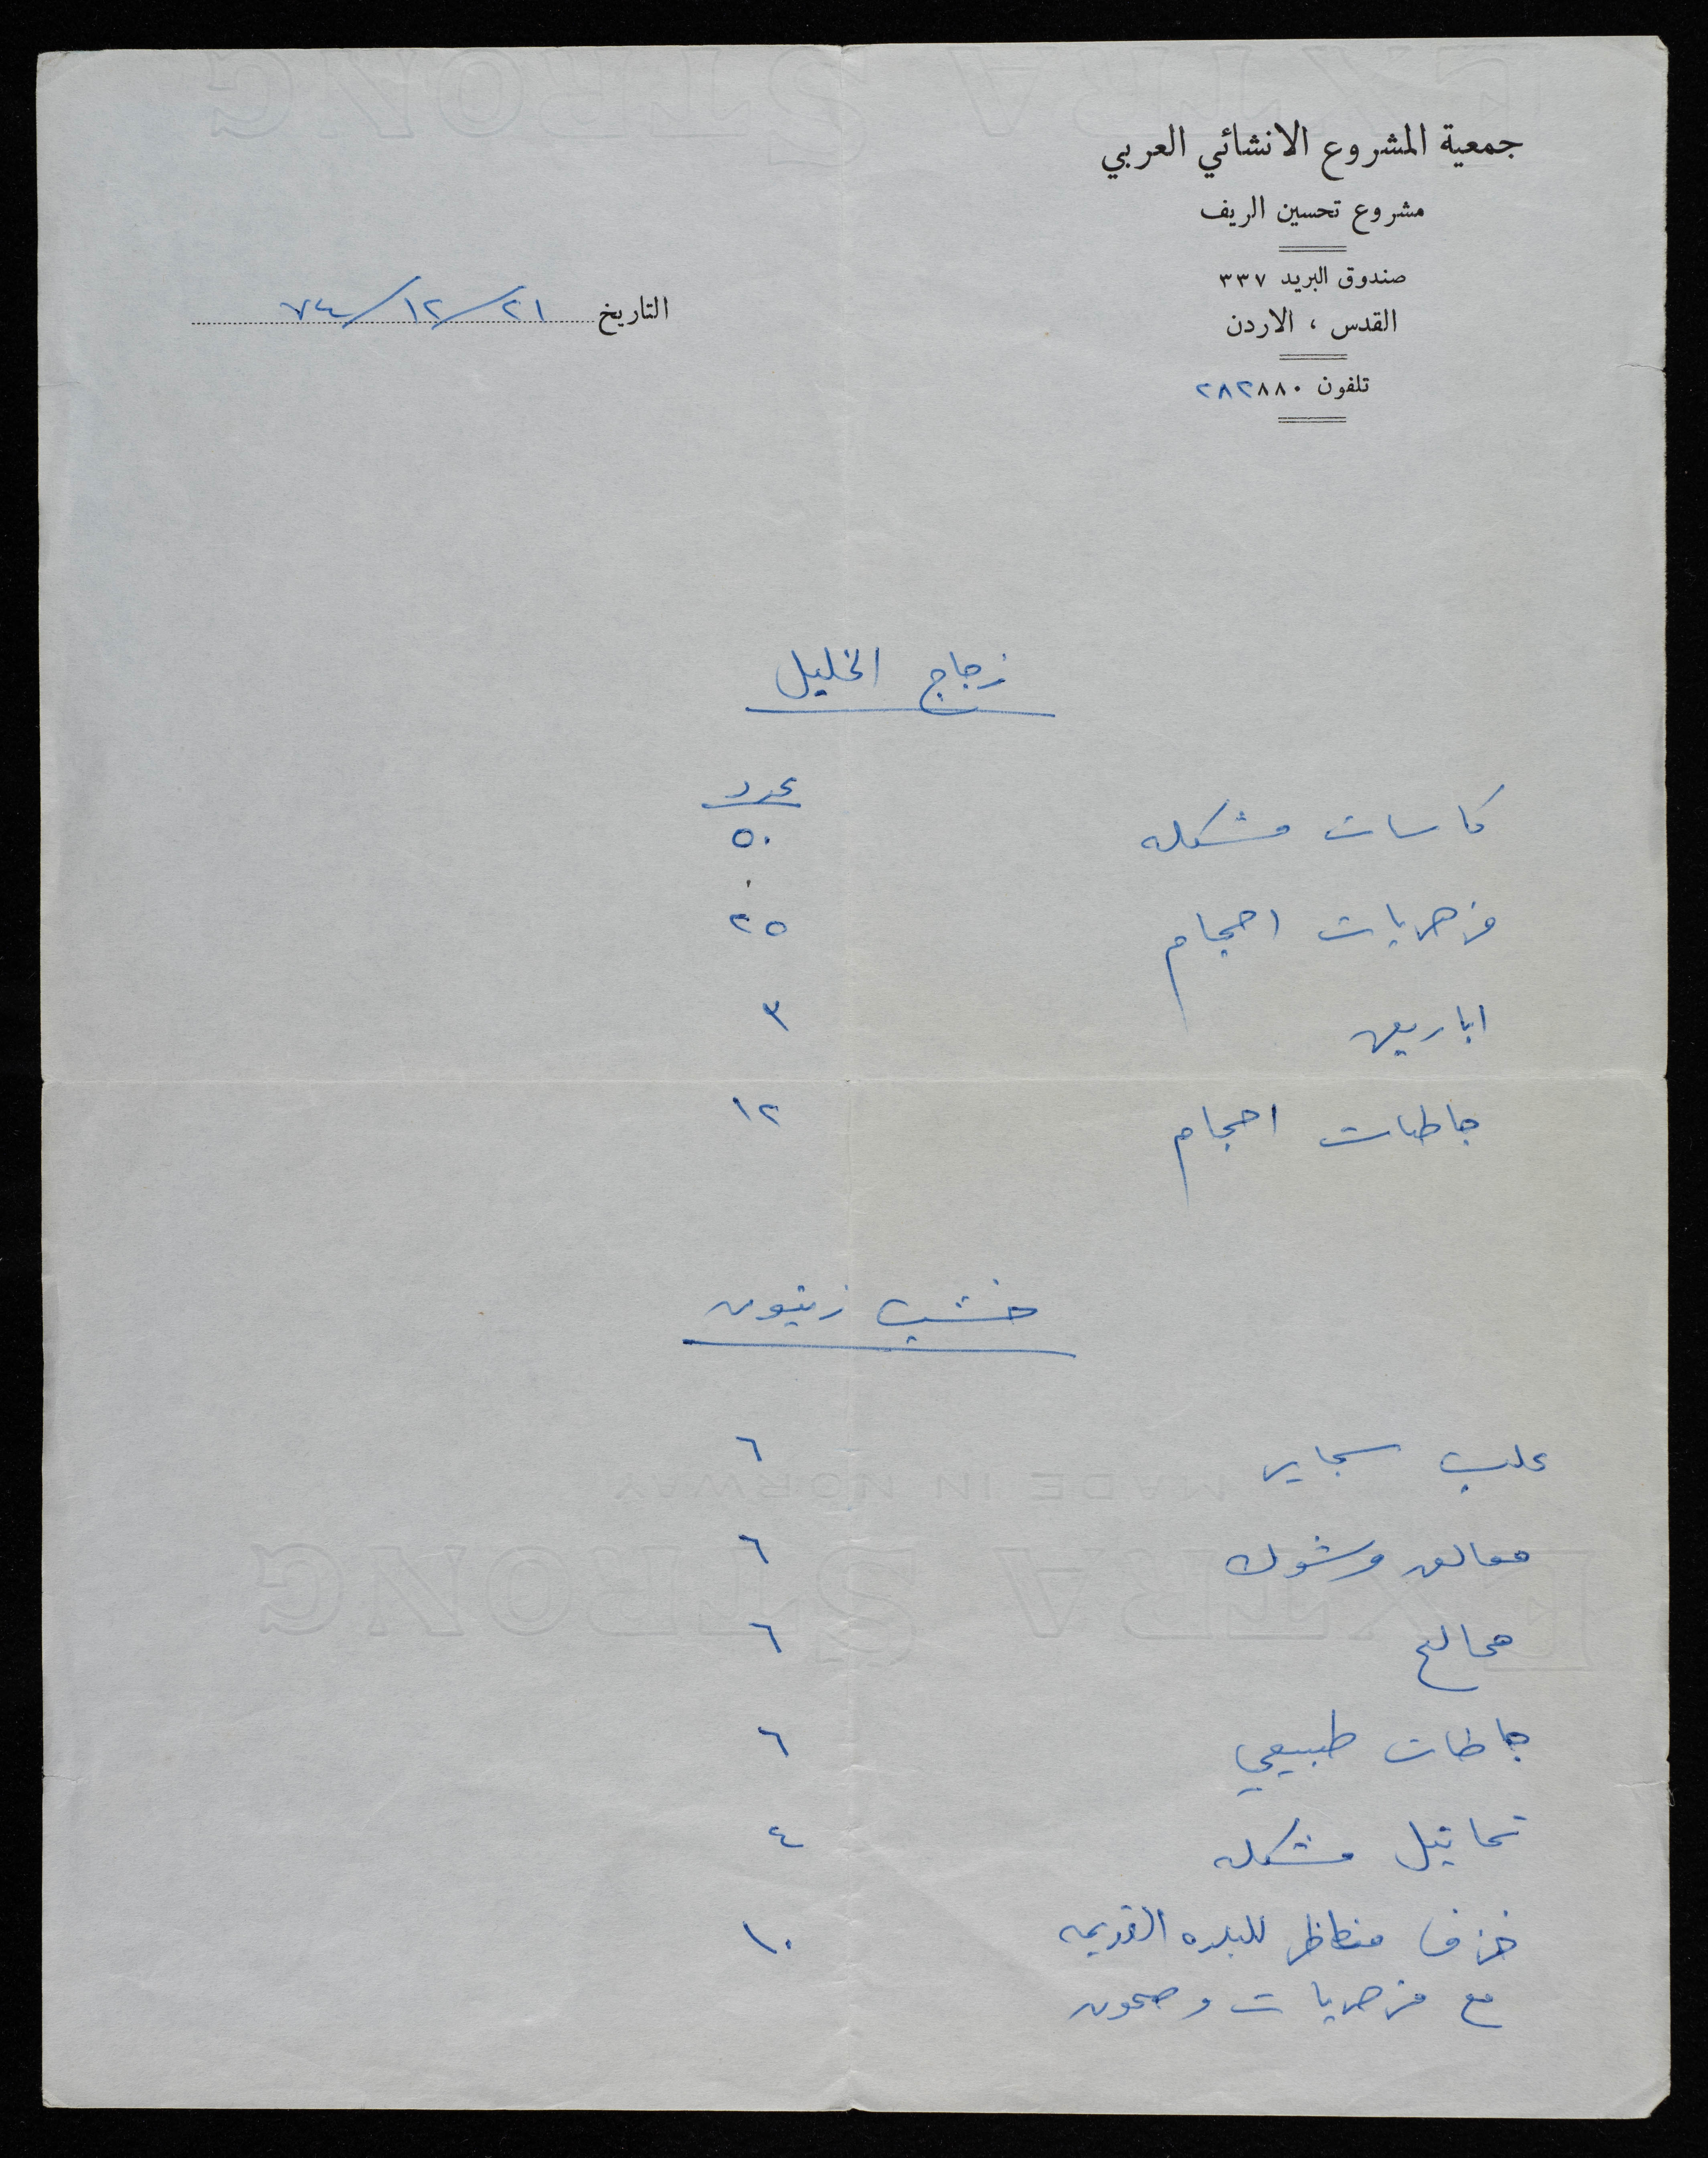 جمعية المشروع الانشائي العربي
مشروع تحسين الريف
صندوق البريد ٣٣٧
القدس ، الاردن
تلفون ٢٨٢٨٨٠
التاريخ ٢١/١٢/٧٤
زجاج الخليل
عدد
كاسات مشكله ٥٠
مزهريات احجام ٢٥
اباريق ٣
جاطات احجام ١٢
خشب زيتون
علب سجاير ٦
معالق وشوك ٦
ممالح ٦
جاطات طبيعي ٦
تماثيل مشكله ٤
خزف مناظر للبلده القديمه ١٠
مع مزهريات وصحون
EXTRA STRONG
MADE IN NORWAY
EXTRA STRONG